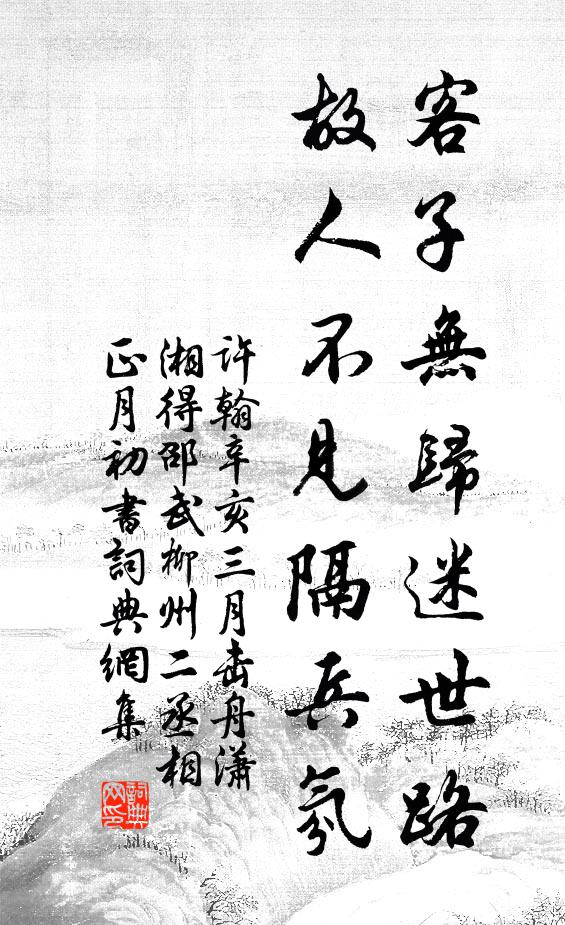 客子無歸迷世路
故人不見隔兵氛
許翰辛亥三月击舟瀟
湘得邵武柳州二丞相
正月初書詞典網集
詞典
网印